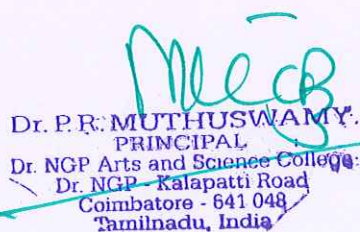 Dr. P. R. MUTHUSWAMY.
PRINCIPAL
Dr. NGP Arts and Science College:
Dr. NGP - Kalapatti Road
Coimbatore - 641 048
Tamilnadu, India